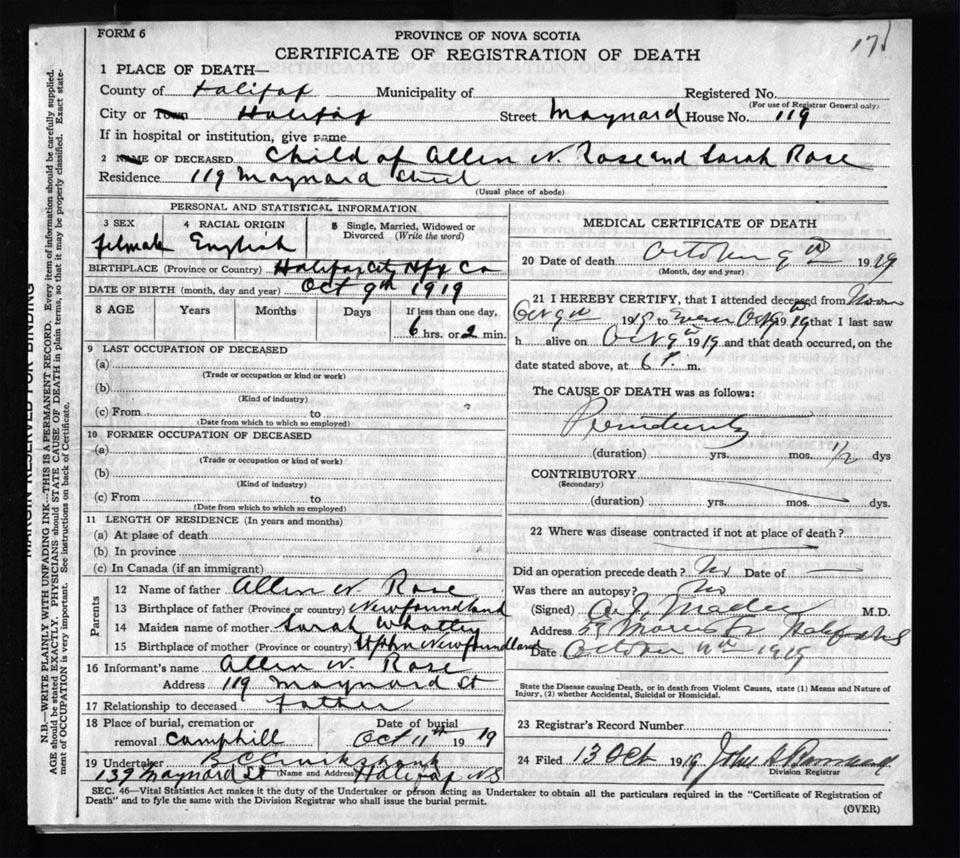 FORM 6
PROVINCE OF NOVA SCOTIA
CERTIFICATE OF REGISTRATION OF DEATH
171
1 PLACE OF DEATH—
County of Halifax Municipality of Registered No.
(For use of Registrar General only)
City or Town Halifax Street Maynard House No. 119
If in hospital or institution, give name
2 NAME OF DECEASED Child of Allen N. Rose and Sarah Rose
Residence 119 Maynard Street
(Usual place of abode)
PERSONAL AND STATISTICAL INFORMATION
3 SEX 4 RACIAL ORIGIN 5 Single, Married, Widowed or Divorced (Write the word)
English
BIRTHPLACE (Province or Country) Halifax City Hfx Co
DATE OF BIRTH (month, day and year) Oct 9th 1919
8 AGE Years Months Days If less than one day,
6 hrs. or 2 min.
9 LAST OCCUPATION OF DECEASED
(a)
(Trade or occupation or kind or work)
(b)
(Kind of industry)
(c) From to
(Date from which to which so employed)
10 FORMER OCCUPATION OF DECEASED
(a)
(Trade or occupation or kind of work)
(b)
(Kind of industry)
(c) From to
(Date from which to which so employed)
11 LENGTH OF RESIDENCE (In years and months)
(a) At place of death
(b) In province
(c) In Canada (if an immigrant)
Parents
12 Name of father Allen N. Rose
13 Birthplace of father (Province or country) Newfoundland
14 Maiden name of mother Sarah
15 Birthplace of mother (Province or country) Newfoundland
16 Informant's name Allen N. Rose
Address 119 Maynard St
17 Relationship to deceased Father
18 Place of burial, cremation or Date of burial
removal Camphill Oct 11th 1919
19 Undertaker
139 Maynard St (Name and Address) Halifax NS
MEDICAL CERTIFICATE OF DEATH
20 Date of death October 9th 1919
(Month, day and year)
21 I HEREBY CERTIFY, that I attended deceased from Noon
Oct 9th 19 to Oct 9th 1919 that I last saw
h alive on Oct 9th 1919 and that death occurred, on the
date stated above, at 6 P. m.
The CAUSE OF DEATH was as follows:
(duration) yrs. mos. 1/2 dys
CONTRIBUTORY
(Secondary)
(duration) yrs. mos. dys.
22 Where was disease contracted if not at place of death?
Did an operation precede death? No Date of
Was there an autopsy? No
(Signed) M.D.
Address
Date October 11th 1919
State the Disease causing Death, or in death from Violent Causes, state (1) Means and Nature of
Injury, (2) whether Accidental, Suicidal or Homicidal.
23 Registrar's Record Number
24 Filed 13 Oct 1919 John
SEC. 46—Vital Statistics Act makes it the duty of the Undertaker or person acting as Undertaker to obtain all the particulars required in the "Certificate of Registration of
Death" and to fyle the same with the Division Registrar who shall issue the burial permit.
(OVER)
MARGIN RESERVED FOR BINDING
N.B.—WRITE PLAINLY WITH UNFADING INK—THIS IS A PERMANENT RECORD. Every item of information should be carefully supplied.
AGE should be stated EXACTLY. PHYSICIANS should STATE CAUSE OF DEATH in plain terms, so that it may be properly classified. Exact state-
ment of OCCUPATION is very important. See instructions on back of Certificate.